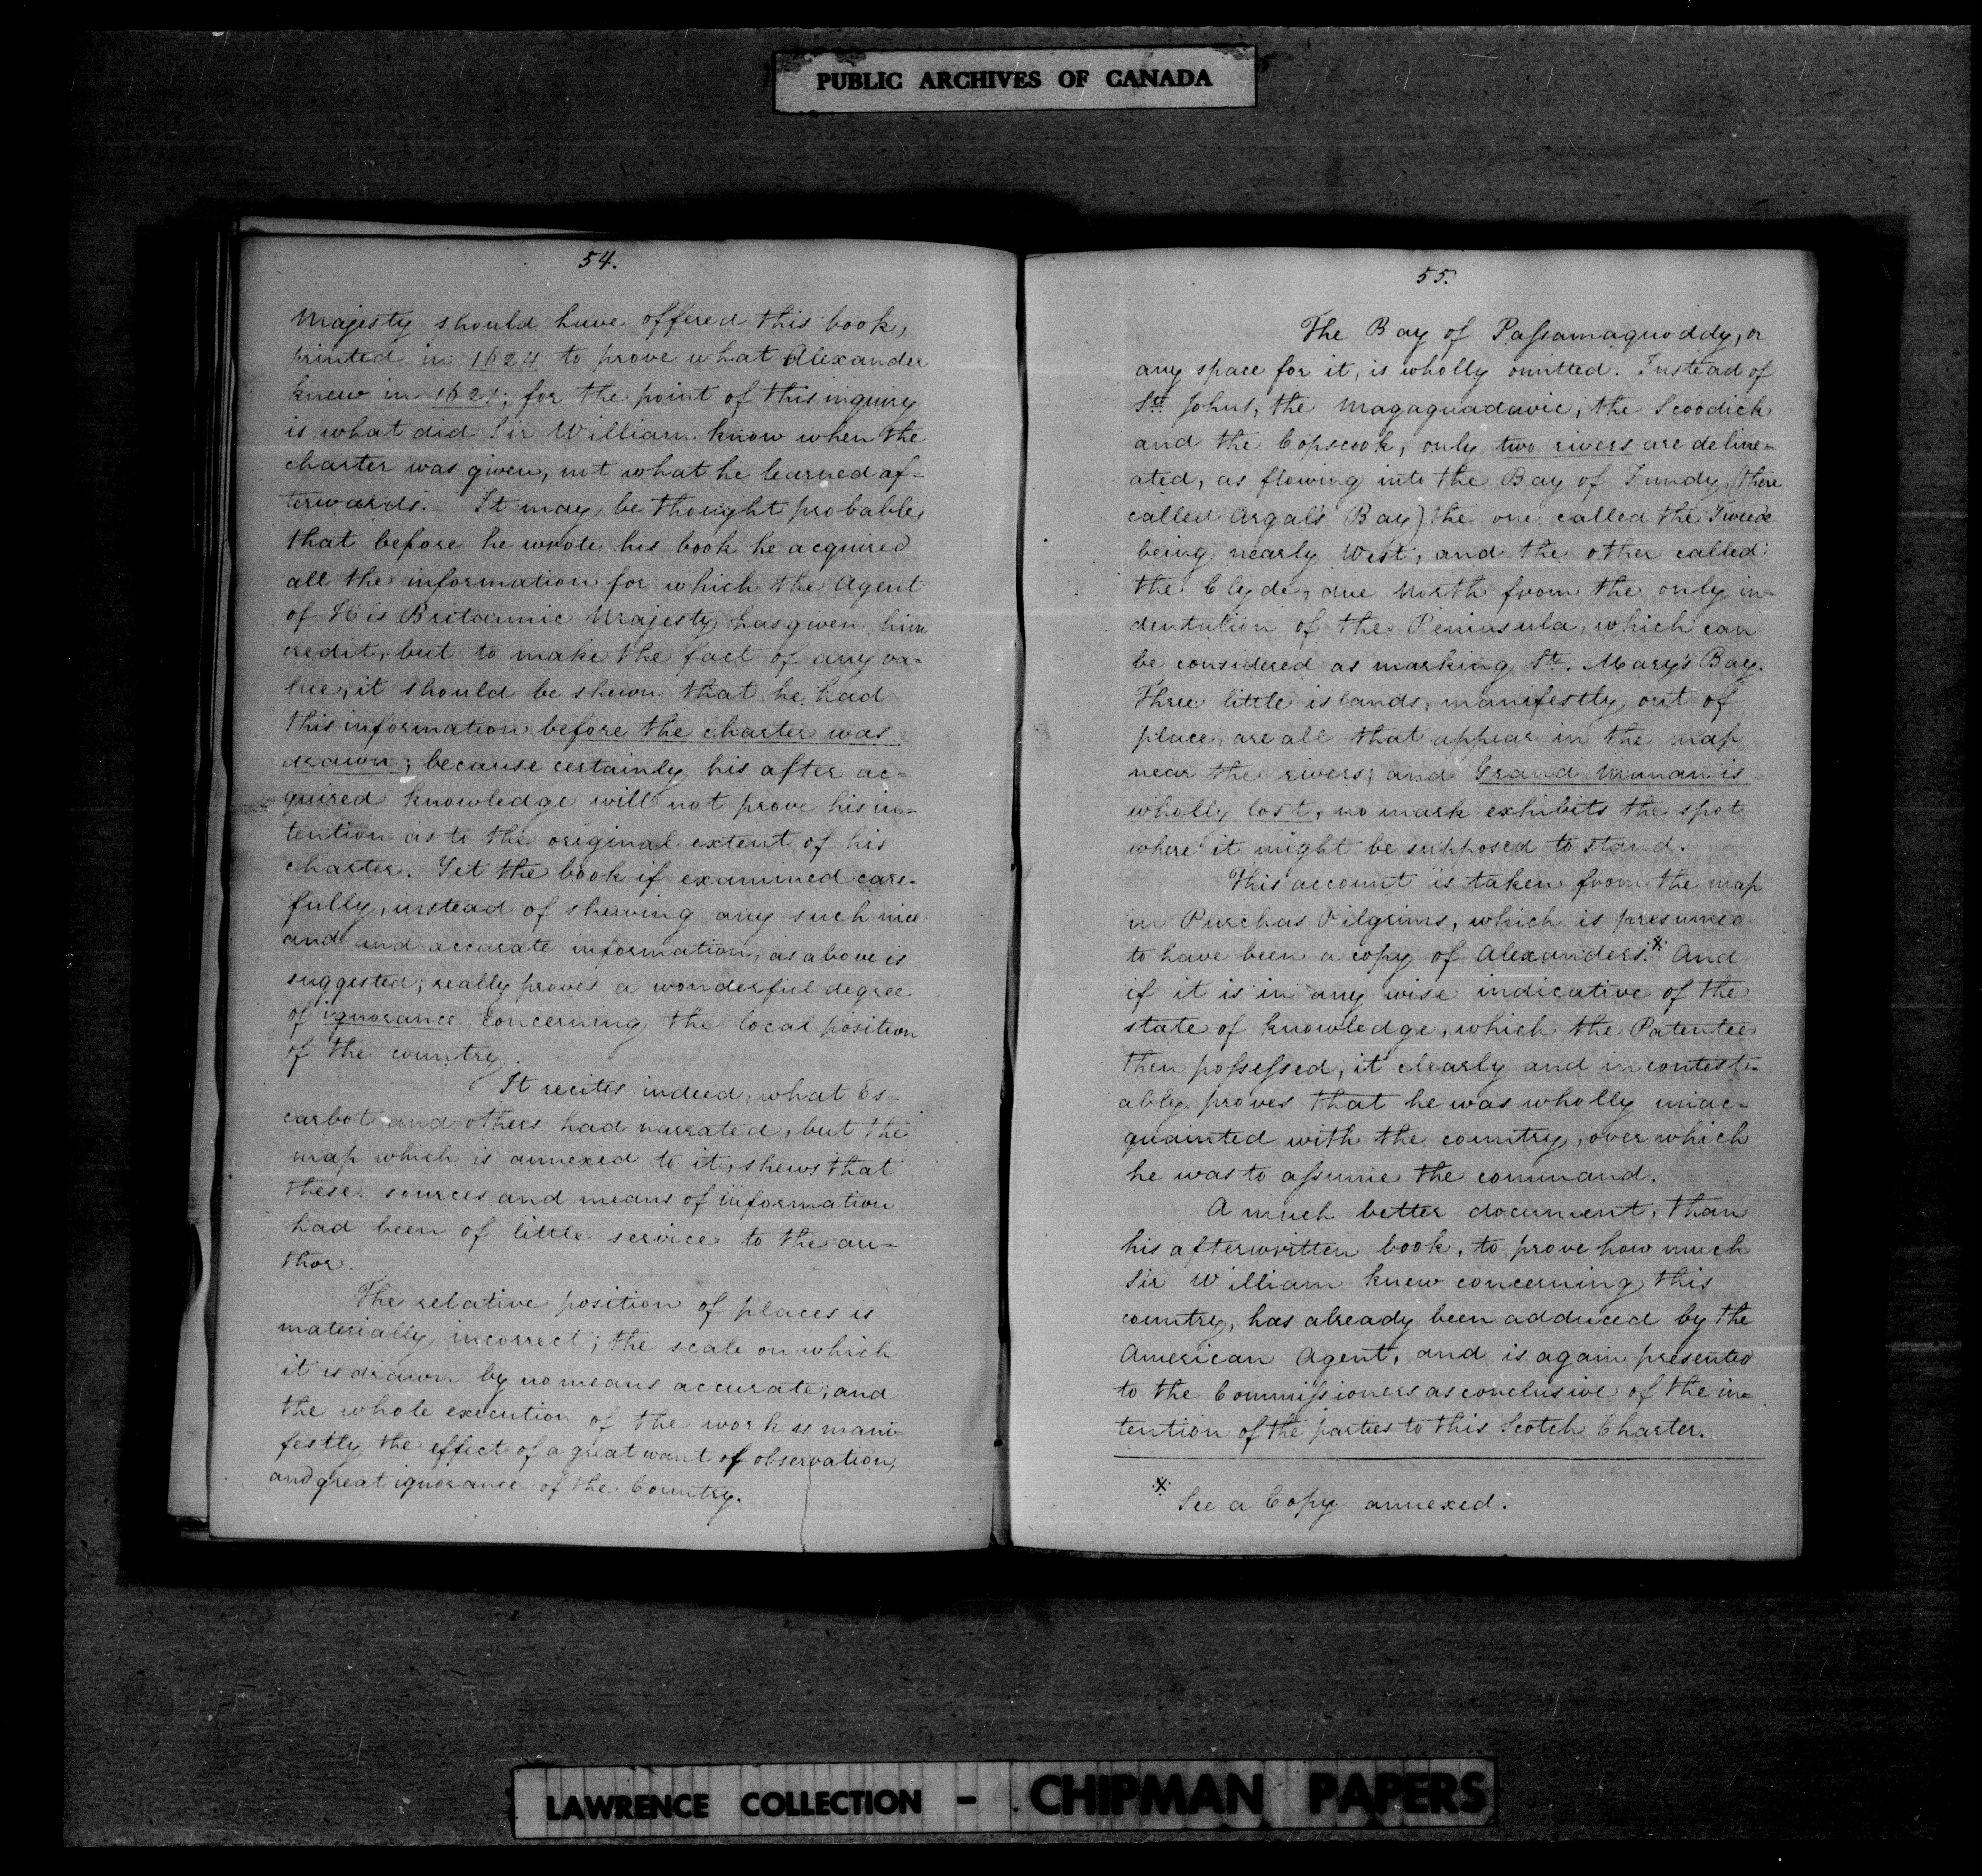 PUBLIC ARCHIVES OF CANADA
54.
Majesty should have offered this book,
printed in 1624 to prove what Alexander
knew in 1621; for the point of this inquiry
is what did Sir William know when the
charter was given, not what he learned af-
terwards. - It may be thought probable,
that before he wrote his book he acquired
all the information for which the Agent
of His Britannic Majesty has given him
credit, but to make the fact of any va-
lue, it should be shewn that he had
this information before the charter was
drawn; because certainly his after ac-
quired knowledge will not prove his in-
tention as to the original extent of his
charter. Yet the book if examined care-
fully, instead of shewing any such nice
and and accurate information, as above is
suggested; really proves a wonderful degree
of ignorance, concerning the local position
of the country.
It recites indeed, what Es-
carbot and others had narrated, but the
map which is annexed to it, shews that
these sources and means of information
had been of little service to the au-
thor.
The relative position of places is
materially incorrect; the scale on which
it is drawn by no means accurate; and
the whole execution of the work is mani-
festly the effect of a great want of observation,
and great ignorance of the Country.
55.
The Bay of Passamaquoddy, or
any space for it, is wholly omitted. Instead of
St. Johns, the Magaguadavic, the Scoodick
and the Copscook, only two rivers are deline-
ated, as flowing into the Bay of Fundy, (there
called Argal's Bay) the one called the Tweede
being nearly West, and the other called
the Clyde, due North from the only in-
dentation of the Peninsula, which can
be considered as marking St. Mary's Bay.
Three little islands, manifestly out of
place, are all that appear in the map
near the rivers; and Grand Manan is
wholly lost, no mark exhibits the spot
where it might be supposed to stand.
This account is taken from the map
in Purchas Pilgrims, which is presumed
to have been a copy of Alexanders.* And
if it is in any wise indicative of the
state of knowledge, which the Patentee
then possessed, it clearly and incontest-
ably proves that he was wholly unac-
quainted with the country, over which
he was to assume the command.
A much better document, than
his afterwritten book, to prove how much
Sir William knew concerning this
country, has already been adduced by the
American Agent, and is again presented
to the Commissioners as conclusive of the in-
tention of the parties to this Scotch Charter.
* See a Copy annexed.
LAWRENCE COLLECTION - CHIPMAN PAPERS